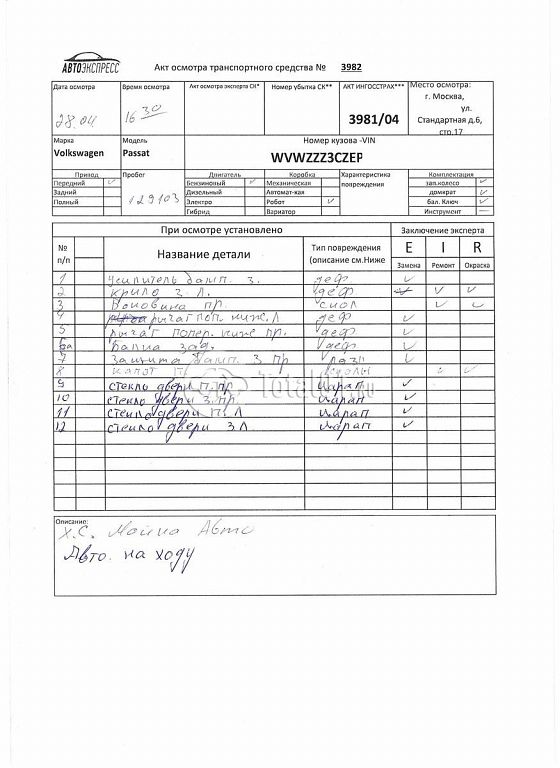 АВТОЭКСПРЕСС
Акт осмотра транспортного средства № 3982
Дата осмотра Время осмотра Акт осмотра эксперта СК* Номер убытка СК** АКТ ИНГОССТРАХ*** Место осмотра:
г. Москва,
ул.
28.04 16 30 3981/04 Стандартная д.6,
стр.17
Марка Модель Номер кузова -VIN
Volkswagen Passat WVWZZZ3CZEP
Привод Пробег Двигатель Коробка Характеристика Комплектация
Передний ✓ Бензиновый ✓ Механическая повреждения зап.колесо ✓
Задний Дизельный Автомат-кая домкрат ✓
Полный 129103 Электро Робот ✓ бал. Ключ ✓
Гибрид Вариатор Инструмент —
При осмотре установлено Заключение эксперта
№ п/п Название детали Тип повреждения (описание см.Ниже E I R
Замена Ремонт Окраска
1 усилитель бамп. з. деф ✓
2 крыло з л. деф ✓ ✓
3 боковина пр. скол ✓ ✓
4 рычаг поп. ниж. л деф ✓
5 рычаг попер. ниже пр. деф ✓
6а балка зад. деф ✓
7 защита бамп. з пр ✓
8 капот сколы ✓
9 стекло двери п.пр царап ✓
10 стекло двери з.пр. царап ✓
11 стекло двери п.Л царап ✓
12 стекло двери з Л царап ✓
Total01.ru
Описание:
Х.С. Авто
Авто. на ходу